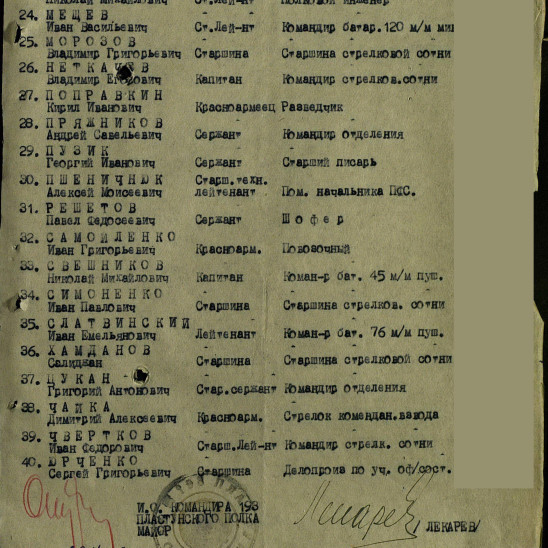 Николай Михайлович Ст.Лей-нт Полковой инженер
24. МЕЩЕВ
Иван Васильевич Ст.Лей-нт Командир батар.120 м/м мин
25. МОРОЗОВ
Владимир Григорьевич Старшина Старшина стрелковой сотни
26. НЕТКАЧЕВ
Владимир Егорович Капитан Командир стрелков.сотни
27. ПОПРАВКИН
Кирил Иванович Красноармеец Разведчик
28. ПРЯЖНИКОВ
Андрей Савельевич Сержант Командир отделения
29. ПУЗИК
Георгий Иванович Сержант Старший писарь
30. ПШЕНИЧНЮК Старш.техн.
Алексей Моисеевич лейтенант Пом. начальника ПФС.
31. РЕШЕТОВ
Павел Федосеевич Сержант Шофер
32. САМОЙЛЕНКО
Иван Григорьевич Красноарм. Повозочный
33. СВЕШНИКОВ
Николай Михайлович Капитан Коман-р бат. 45 м/м пуш.
34. СИМОНЕНКО
Иван Павлович Старшина Старшина стрелков. сотни
35. СЛАТВИНСКИЙ
Иван Емельянович Лейтенант Коман-р бат. 76 м/м пуш.
36. ХАМДАНОВ
Салиджан Старшина Старшина стрелковой сотни
37. ЦУКАН
Григорий Антонович Стар.сержант Командир отделения
38. ЧАЙКА
Димитрий Алексеевич Красноарм. Стрелок комендан.взвода
39. ЧВЕРТКОВ
Иван Федорович Старш.Лей-нт Командир стрелк. сотни
40. ЮРЧЕНКО
Сергей Григорьевич Старшина Делопроиз по уч. оф/сост.
И.О. КОМАНДИРА 193
ПЛАСТУНСКОГО ПОЛКА
МАЙОР Лекарев /ЛЕКАРЕВ/